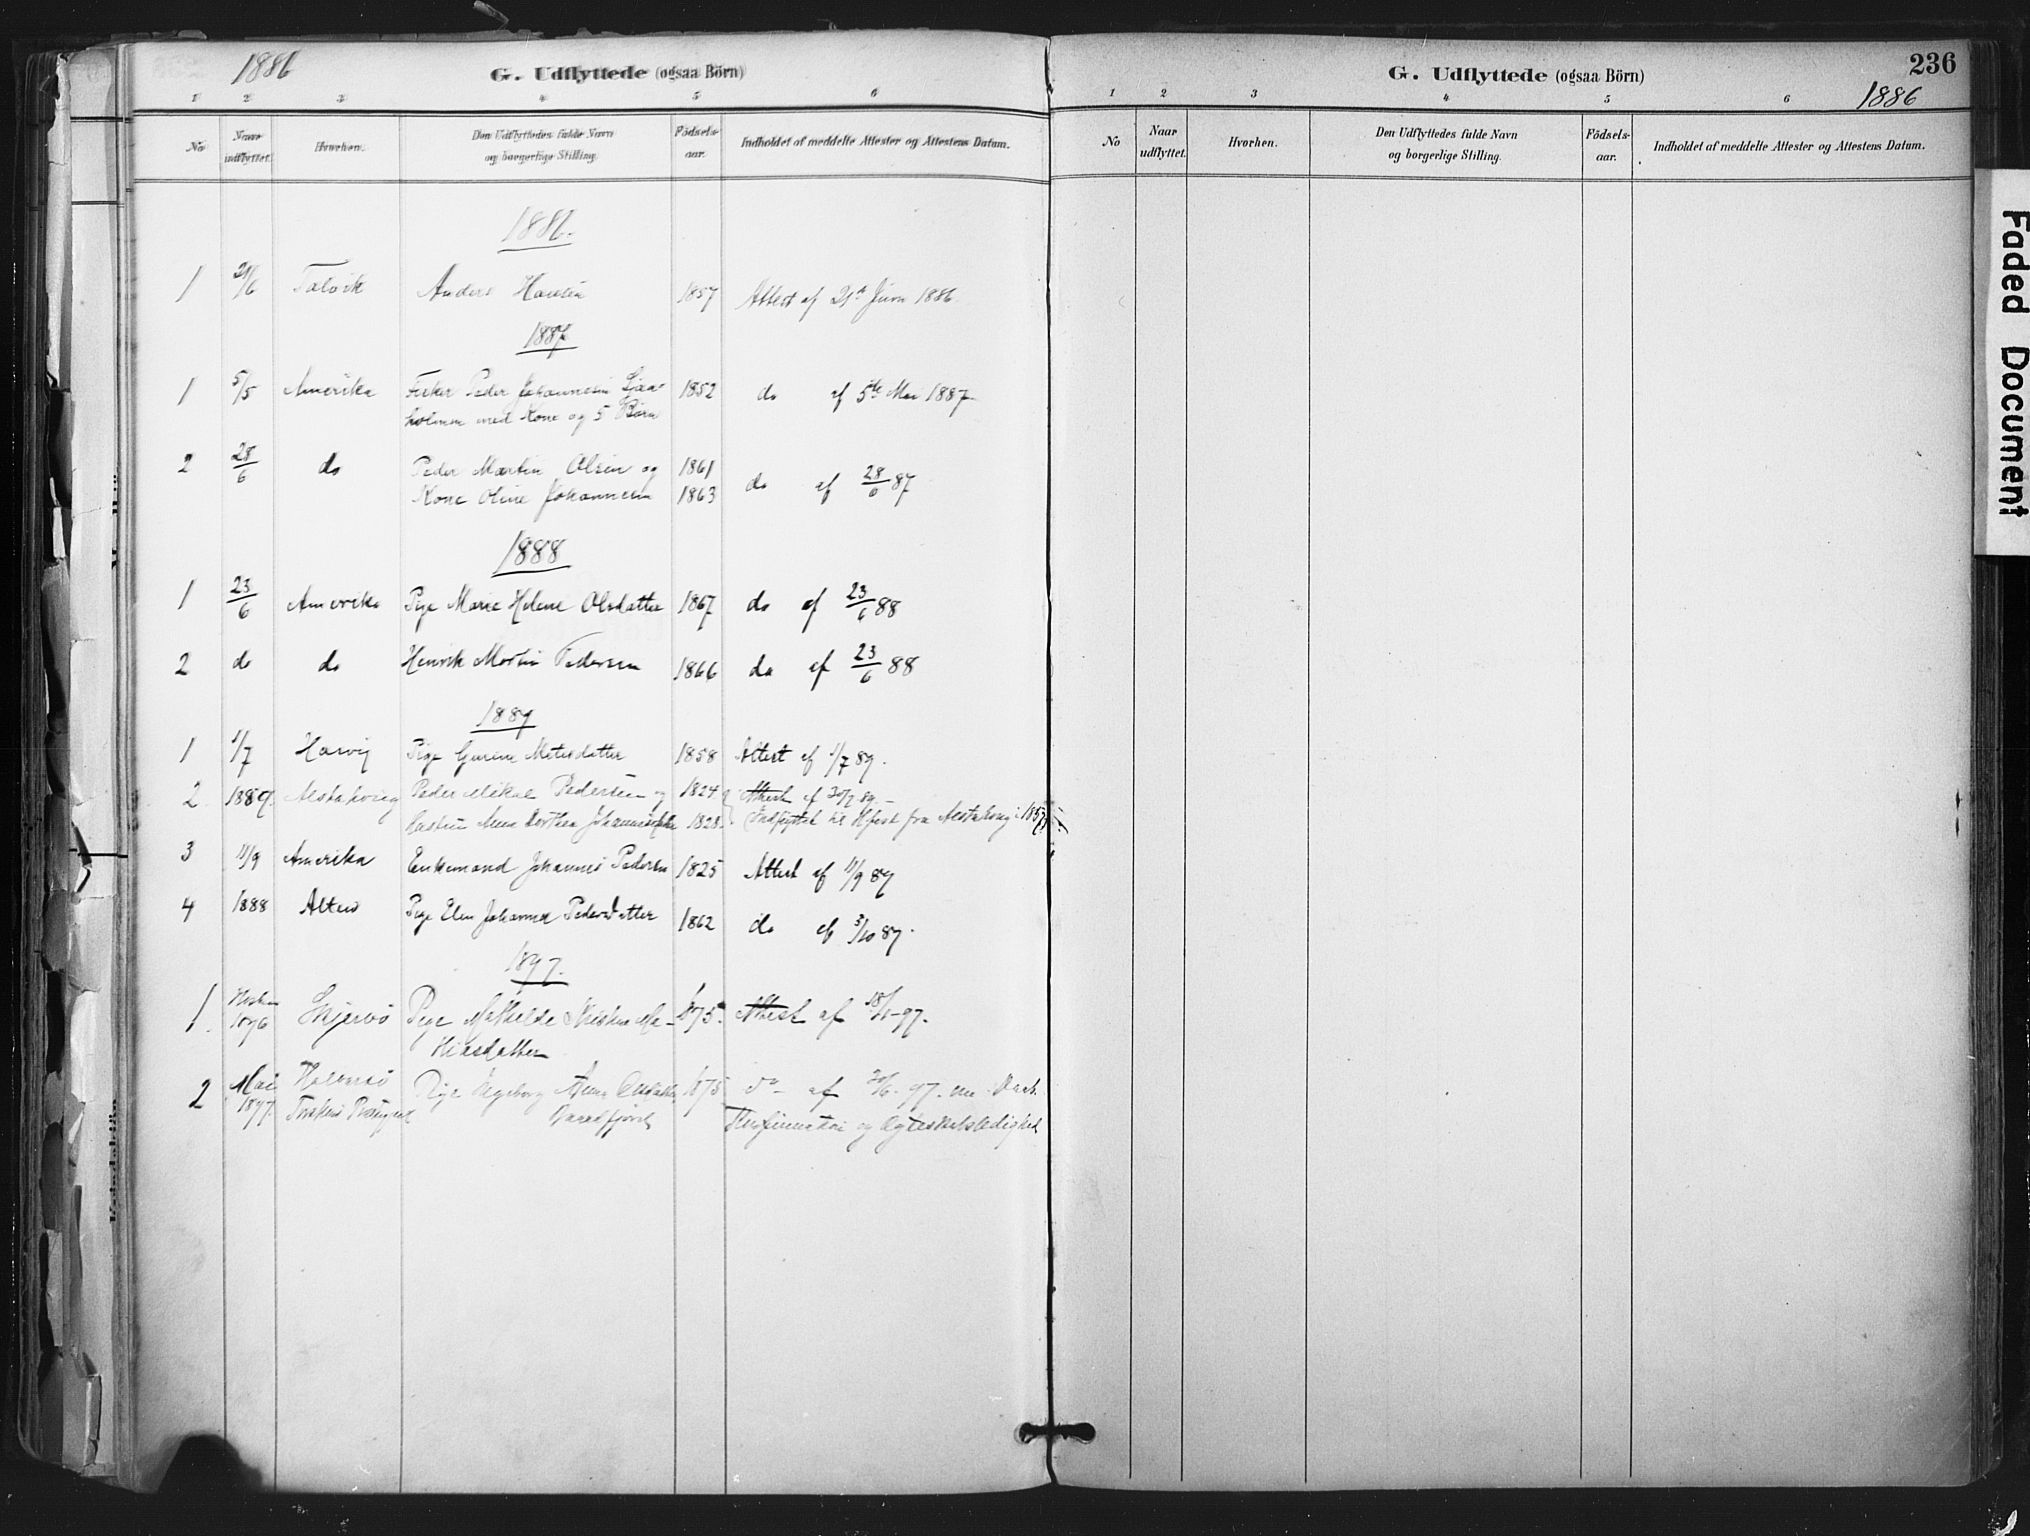 1886
G. Udflyttede (ogsaa Börn)
1 2 3 4 5 6
No
Naar udflyttet.
Hvorhen.
Den Udflyttedes fulde Navn og borgerlige Stilling.
Födsels-aar.
Indholdet af meddelte Attester og Attestens Datum.
1886.
1 21/6 Talvik Anders Hansen 1857 Attest af 21de Juni 1886.
1887
1 5/5 Amerika Fisker Peder Johannesen 1852 do af 5te Mai 1887
holmen med Kone og 5 Børn
2 28/6 do Peder Martin Olsen og 1861
Kone Oline Johannesen 1863 do af 28/6 87
1888
1 23/6 Amerika Pige Marie Helene Olsdatter 1867 do af 23/6 88
2 do do Henrik Martin Pedersen 1866 do af 23/6 88
1889
1 1/7 Pige 1858 Attest af 1/7 89.
2 1889. Peder Mikal Pedersen og 1824 Attest af 30/7 89
Hustru Anna Dorthea 1828. Indflyttet til fra i 1857
3 11/9 Amerika Enkemand Johannes Pedersen 1825 Attest af 11/9 89
4 1888 Alten Pige Elen Johanna Pedersdatter 1862 do af 3/10 89.
1897.
1. Høsten 1896 Skjervö Pige Mathilde 1875. Attest af 97.
2 Mai 1897. Pige Ingeborg Anna 1875 do af 97. om Daab
og Ægteskabsledighed
G. Udflyttede (ogsaa Börn)
236
1886
1 2 3 4 5 6
No
Naar udflyttet.
Hvorhen.
Den Udflyttedes fulde Navn og borgerlige Stilling.
Födsels-aar.
Indholdet af meddelte Attester og Attestens Datum.
Faded Document